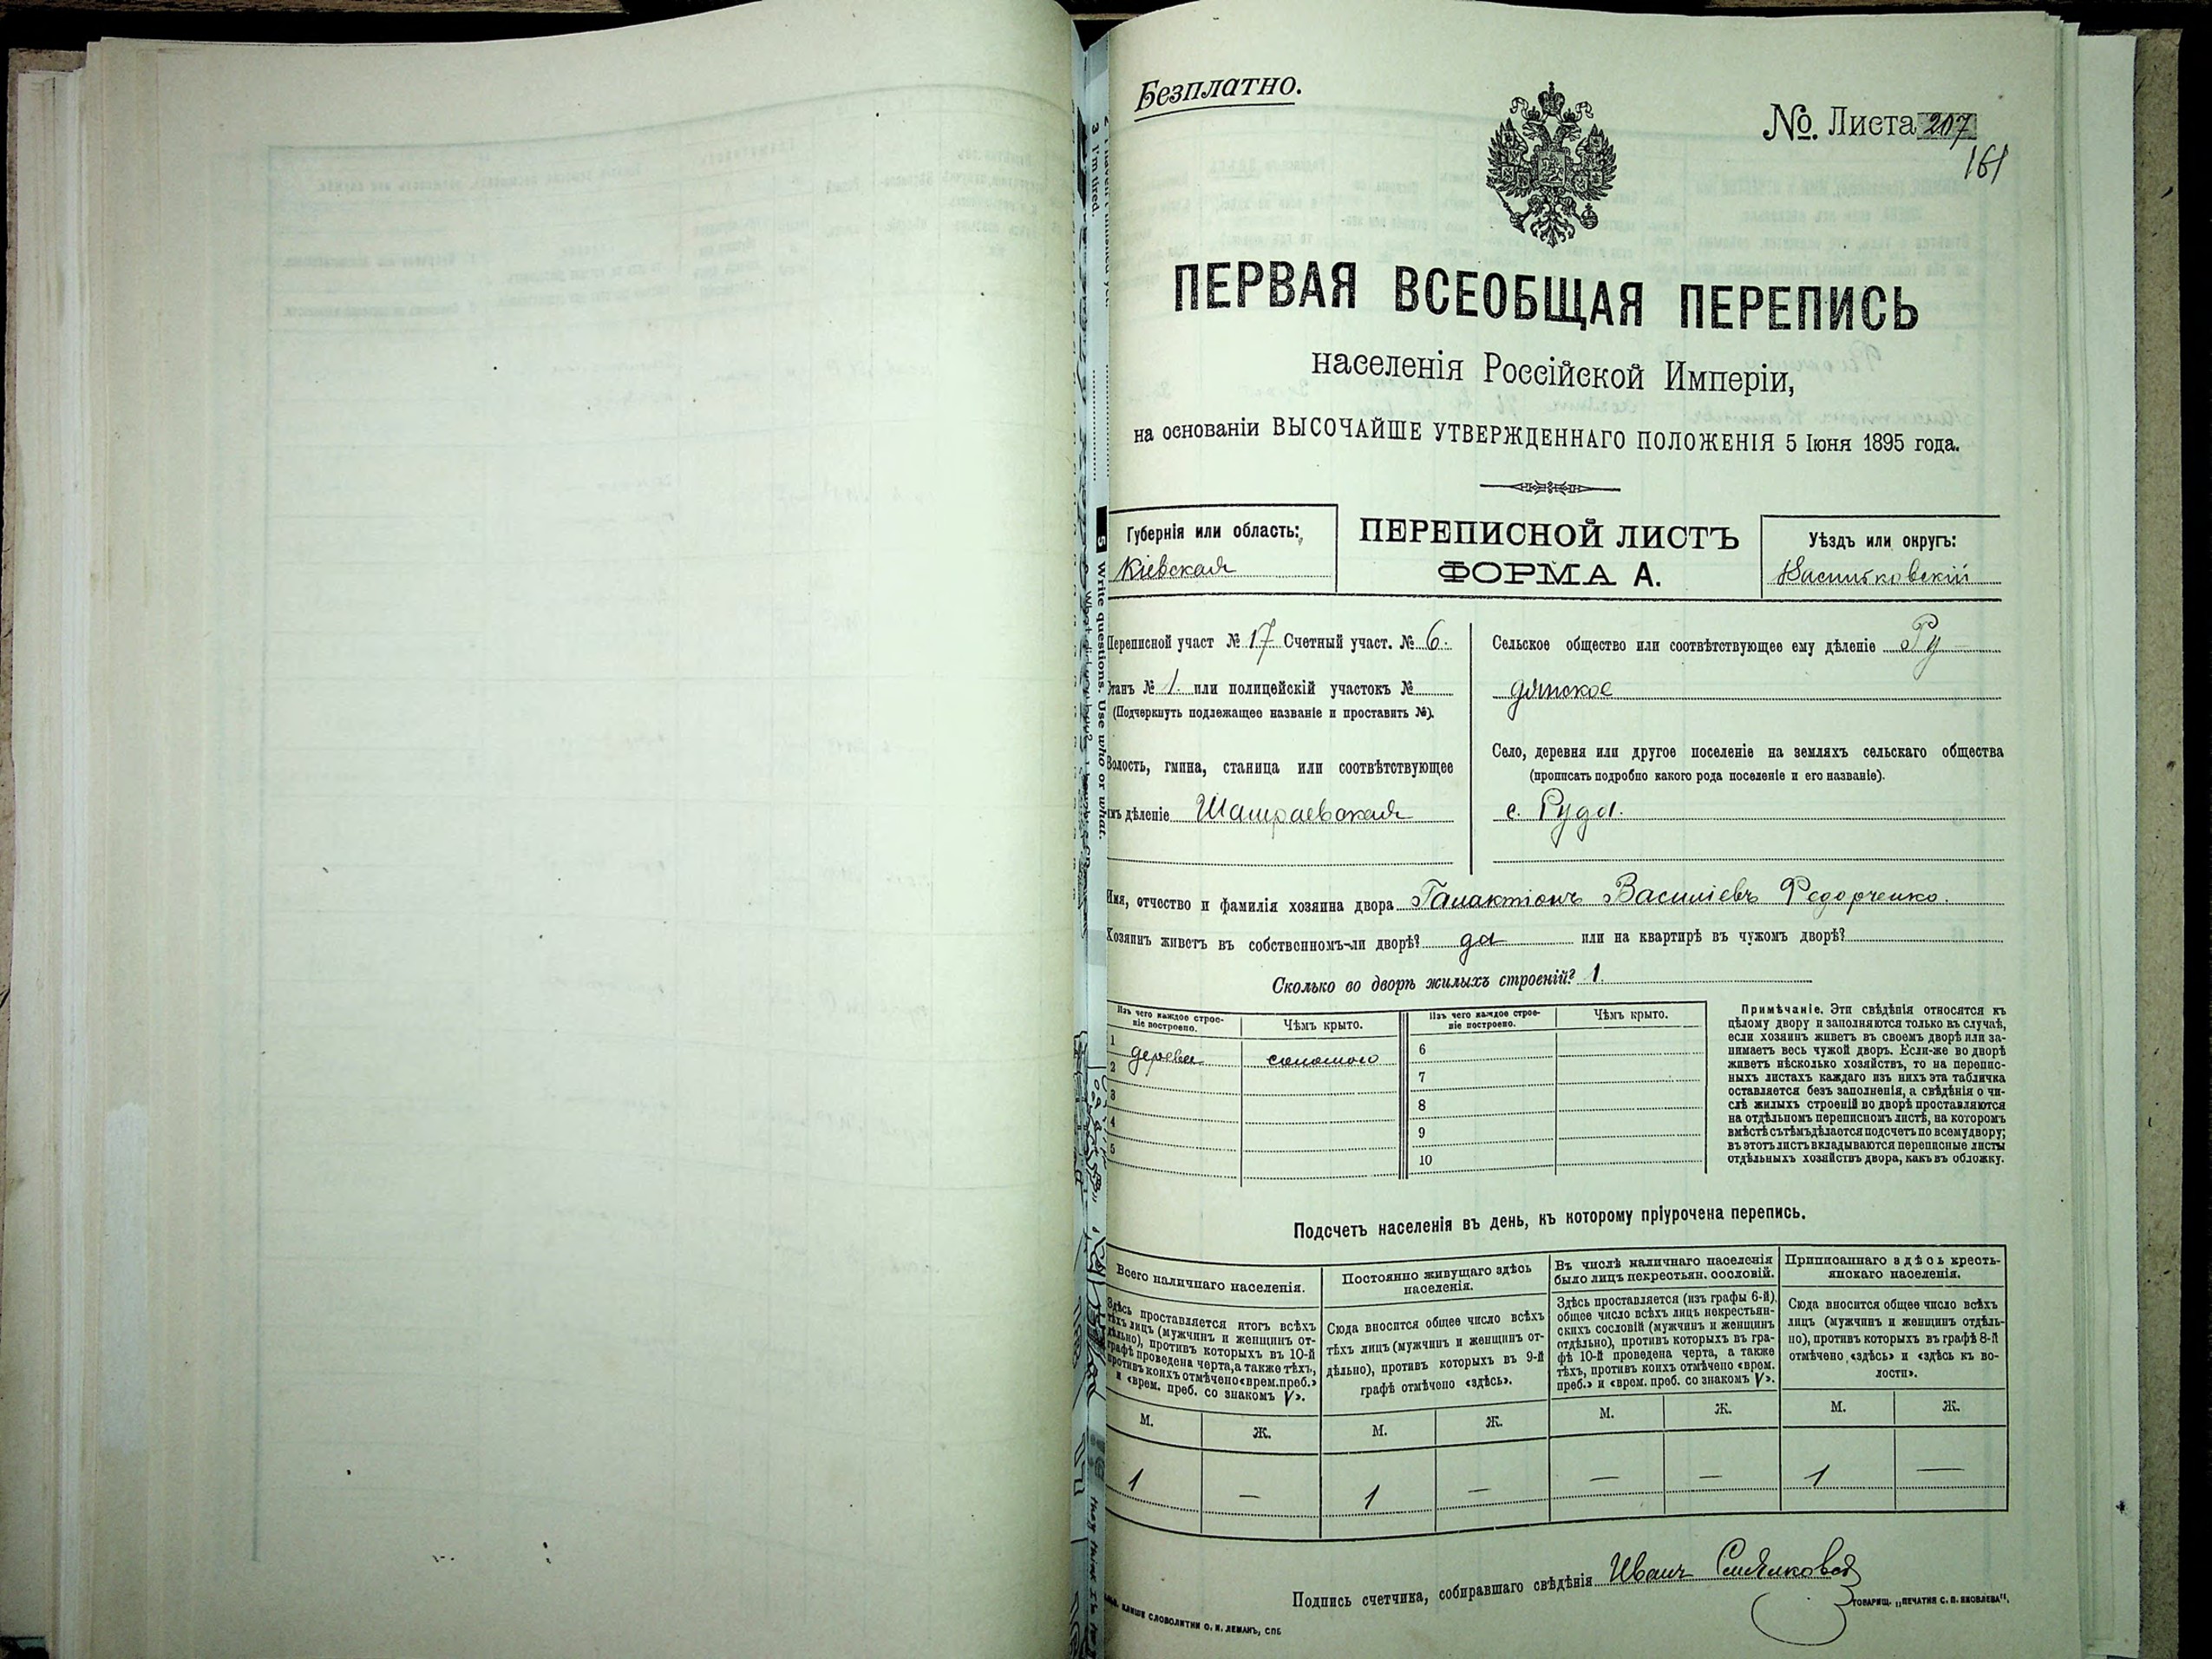 Безплатно.
№. Листа 207
161
ПЕРВАЯ ВСЕОБЩАЯ ПЕРЕПИСЬ
населенія Россійской Имперіи,
на основаніи ВЫСОЧАЙШЕ УТВЕРЖДЕННАГО ПОЛОЖЕНІЯ 5 Іюня 1895 года.
Губернія или область:
Кіевская
ПЕРЕПИСНОЙ ЛИСТЪ
ФОРМА А.
Уѣздъ или округъ:
Васильковскій
Переписной участ № 17 Счетный участ. № 6.
Станъ № 1. или полицейскій участокъ №
(Подчеркнуть подлежащее названіе и проставить №).
Волость, гмина, станица или соотвѣтствующее
имъ дѣленіе Шамраевская
Сельское общество или соотвѣтствующее ему дѣленіе Ру-
дянское
Село, деревня или другое поселеніе на земляхъ сельскаго общества
(прописать подробно какого рода поселеніе и его названіе).
с. Руда.
Имя, отчество и фамилія хозяина двора Галактіонъ Василіевъ Федорченко.
Хозяинъ живетъ въ собственномъ-ли дворѣ? да или на квартирѣ въ чужомъ дворѣ?
Сколько во дворѣ жилыхъ строеній? 1.
Изъ чего каждое строе-
ніе построено.
Чѣмъ крыто.
Изъ чего каждое строе-
ніе построено.
Чѣмъ крыто.
1 дерева соломою
2
3
4
5
6
7
8
9
10
Примѣчаніе. Эти свѣдѣнія относятся къ
цѣлому двору и заполняются только въ случаѣ,
если хозяинъ живетъ въ своемъ дворѣ или за-
нимаетъ весь чужой дворъ. Если-же во дворѣ
живетъ нѣсколько хозяйствъ, то на перепис-
ныхъ листахъ каждаго изъ нихъ эта табличка
оставляется безъ заполненія, а свѣдѣнія о чи-
слѣ жилыхъ строеній во дворѣ проставляются
на отдѣльномъ переписномъ листѣ, на которомъ
вмѣстѣ съ тѣмъ дѣлается подсчетъ по всему двору;
въ этотъ листъ вкладываются переписные листы
отдѣльныхъ хозяйствъ двора, какъ въ обложку.
Подсчетъ населенія въ день, къ которому пріурочена перепись.
Всего наличнаго населенія.
Здѣсь проставляется итогъ всѣхъ
тѣхъ лицъ (мужчинъ и женщинъ от-
дѣльно), противъ которыхъ въ 10-й
графѣ проведена черта, а также тѣхъ,
противъ коихъ отмѣчено «врем. преб.»
и «врем. преб. со знакомъ V».
М. Ж.
1 —
Постоянно живущаго здѣсь
населенія.
Сюда вносится общее число всѣхъ
тѣхъ лицъ (мужчинъ и женщинъ от-
дѣльно), противъ которыхъ въ 9-й
графѣ отмѣчено «здѣсь».
М. Ж.
1 —
Въ числѣ наличнаго населенія
было лицъ некрестьян. сословій.
Здѣсь проставляется (изъ графы 6-й)
общее число всѣхъ лицъ некрестьян-
скихъ сословій (мужчинъ и женщинъ
отдѣльно), противъ которыхъ въ гра-
фѣ 10-й проведена черта, а также
тѣхъ, противъ коихъ отмѣчено «врем.
преб.» и «врем. преб. со знакомъ V».
М. Ж.
— —
Приписаннаго здѣсь кресть-
янскаго населенія.
Сюда вносится общее число всѣхъ
лицъ (мужчинъ и женщинъ отдѣль-
но), противъ которыхъ въ графѣ 8-й
отмѣчено «здѣсь» и «здѣсь къ во-
лости».
М. Ж.
1 —
Подпись счетчика, собиравшаго свѣдѣнія Иванъ
КЛИШЕ СЛОВОЛИТНИ О. И. ЛЕМАНЪ, СПБ
ТОВАРИЩ. „ПЕЧАТНЯ С. П. ЯКОВЛЕВА“.
3 I'm tired.
5 Write questions. Use who or what.